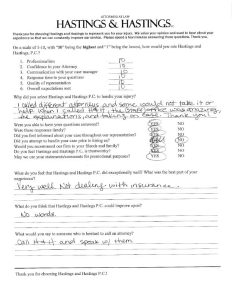 ATTORNEYS AT LAW
HASTINGS & HASTINGS
Thank you for choosing Hastings and Hastings to represent you for your injury. We value your opinion and want to hear about your
experience so that we can constantly improve our service. Please spend a few minutes answering these questions. Thank you.
On a scale of 1-10, with "10" being the highest and "1" being the lowest, how would you rate Hastings and
Hastings, P.C.?
1. Professionalism 10
2. Confidence in your Attorney 10
3. Communication with your case manager 10
4. Response time to your questions
5. Quality of representation
6. Overall expectations met
Why did you select Hastings and Hastings P.C. to handle your injury?
I called different attorneys and some would not take it or
when I called H&H the was amazing,
the explanations, and taking on case. Thank you!
Were you able to have your questions answered? YES NO
Were those responses timely? YES NO
Did you feel informed about your case throughout our representation? YES NO
Did you attempt to handle your case prior to hiring us? YES NO
Would you recommend our firm to your friends and family? YES NO
Do you feel Hastings and Hastings P.C. is trustworthy? YES NO
May we use your statements/comments for promotional purposes? YES NO
What do you feel that Hastings and Hastings P.C. did exceptionally well? What was the best part of your
experience?
Very well. Not dealing with insurance.
What do you think that Hastings and Hastings P.C. could improve upon?
No words.
What would you say to someone who is hesitant to call an attorney?
Call H&H and speak w/ them
Thank you for choosing Hastings and Hastings P.C.!